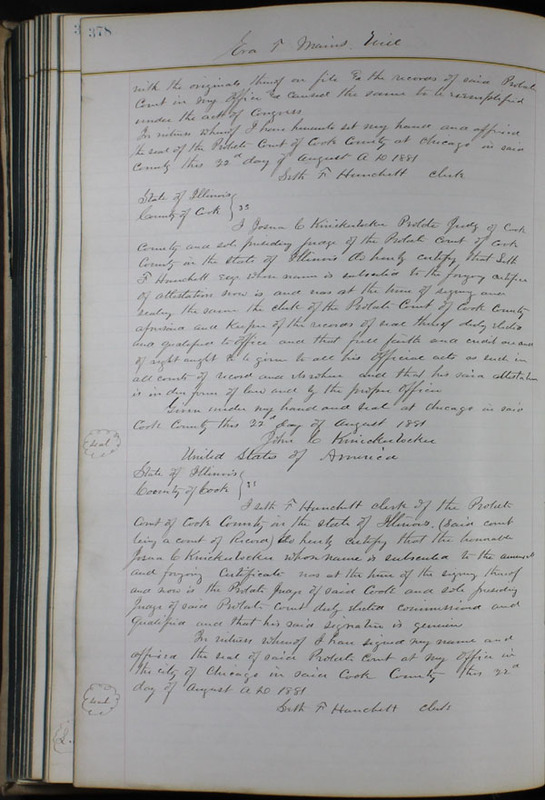 378
Eva F Mains Will
with the originals thereof on file & the records of said Probate
Court in my Office & caused the same to be exemplified
under the act of Congress
In witness whereof I have hereunto set my hand and affixed
the seal of the Probate Court of Cook County at Chicago in said
County this 22d day of August A D 1881
Seth F Hanchett Clerk
State of Illinois
County of Cook } ss
I Joshua C Knickerbocker Probate Judge of Cook
County and sole presiding judge of the Probate Court of Cook
County in the State of Illinois do hereby certify that Seth
F Hanchett Esqr whose name is subscribed to the forgoing certificate
of attestation now is and was at the time of signing and
sealing the same the clerk of the Probate Court of Cook County
aforesaid and keeper of the records of seal thereof duly elected
and qualified to office and that full faith and credit are and
of right ought to be given to all his official acts as such in
all courts of record and elsewhere and that his said attestation
is in due form of law and by the proper officer
Given under my hand and seal at Chicago in said
Cook County this 22d day of August 1881
seal
John C Knickerbocker
United States of America
State of Illinois
County of Cook } ss
I Seth F Hanchett clerk of the Probate
Court of Cook County in the State of Illinois. (said court
being a court of Record) do hereby certify that the honorable
Joshua C Knickerbocker whose name is subscribed to the annexed
and forgoing Certificate was at the time of the signing thereof
and now is the Probate Judge of said Cook and sole presiding
Judge of said Probate Court duly elected commissioned and
qualified and that his said signature is genuine
In witness whereof I have signed my name and
affixed the seal of said Probate Court at my Office in
the city of Chicago in said Cook County this 22d
day of August A D 1881
seal
Seth F Hanchett Clerk